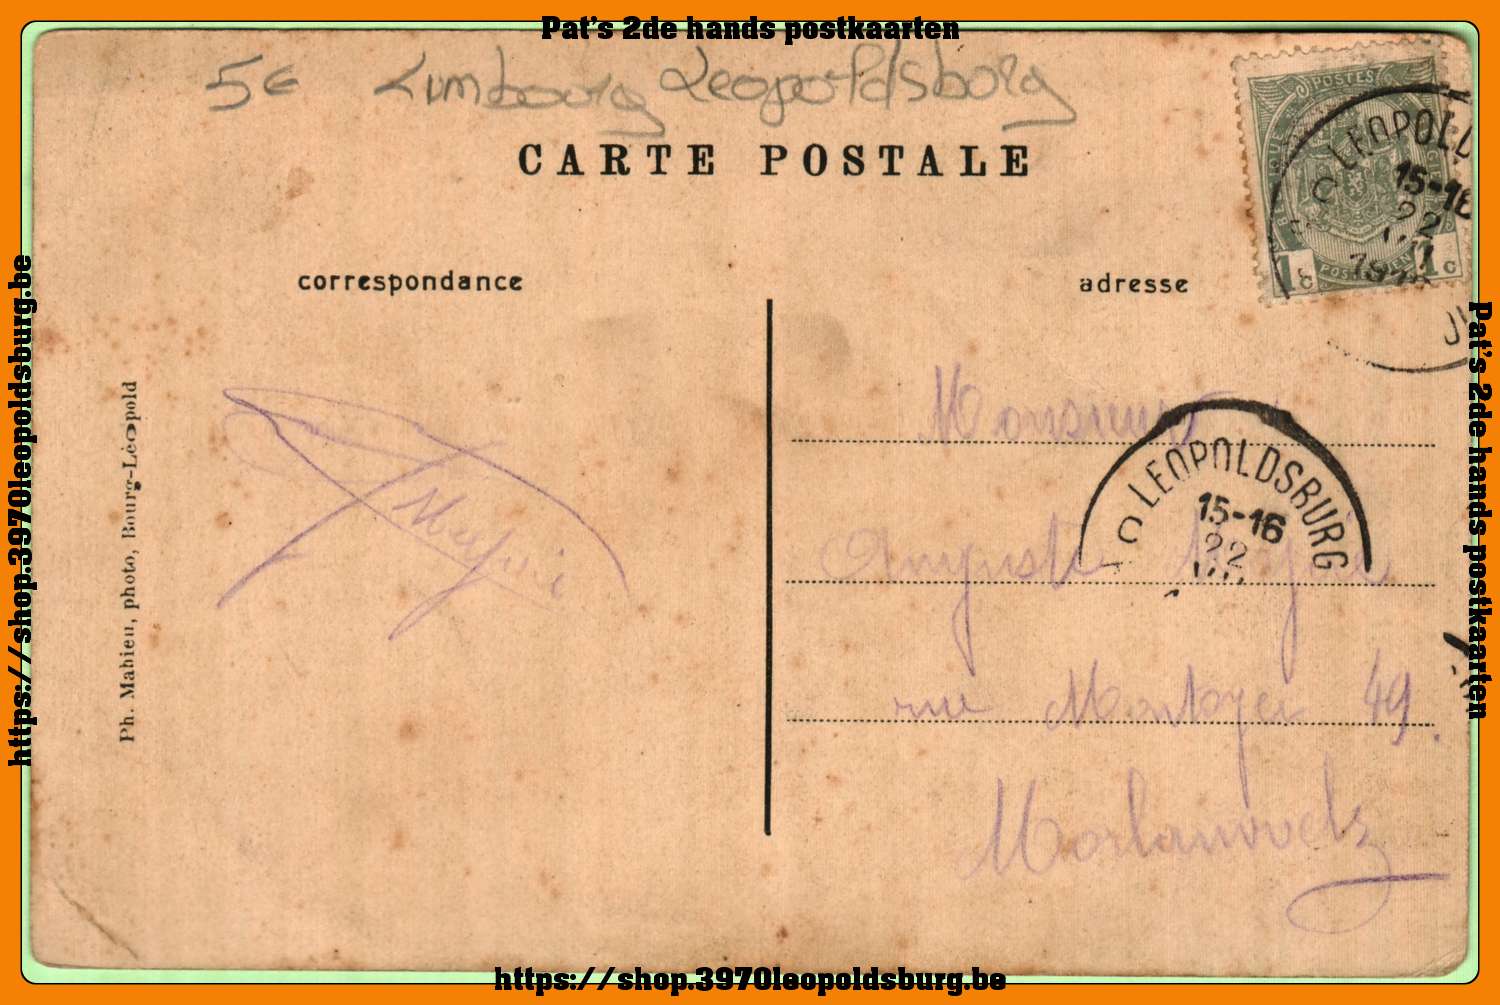 Pat's 2de hands postkaarten
5€ Limbourg Leopoldsborg
CARTE POSTALE
POSTES
LEOPOLD
15-16
22
VII
POSTERIJEN
1 c
1 c
correspondance
adresse
Ph. Mahieu, photo, Bourg-Léopold
Monsieur
LEOPOLDSBURG
15-16
22
Auguste
rue 49.
https://shop.3970leopoldsburg.be
Pat's 2de hands postkaarten
https://shop.3970leopoldsburg.be